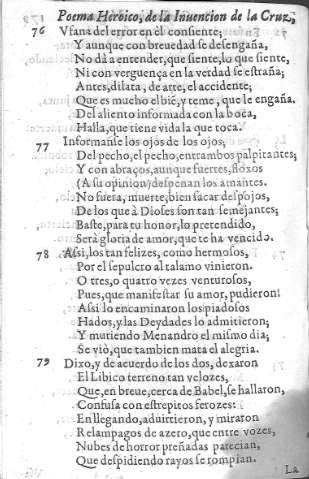 Poema Heroico, de la Inuencion de la Cruz,
76 Vfana del error en èl consiente;
Y aunque con breuedad se desengaña,
No dà a entender, que siente, lo que siente,
Ni con verguença en la verdad se estraña;
Antes, dilata, de arte, el accidente;
Que es mucho el biẽ, y teme, que le engaña.
Del aliento informada con la boca,
Halla, que tiene vida la que toca.
77 Informanse los ojos de los ojos,
Del pecho, el pecho, entrambos palpitantes;
Y con abraços, aunque fuertes, floxos
(A su opinion) despenan los amantes.
No fuera, muerte, bien sacar despojos,
De los que à Dioses son tan semejantes;
Baste, para tu honor, lo pretendido,
Serà gloria de amor, que te ha vencido.
78 Assi, los tan felizes, como hermosos,
Por el sepulcro al talamo vinieron.
O tres, o quatro vezes venturosos,
Pues, que manifestar su amor, pudieron!
Assi lo encaminaron los piadosos
Hados, y las Deydades lo admitieron;
Y muriendo Menandro el mismo dia;
Se viò, que tambien mata el alegria.
79 Dixo, y de acuerdo de los dos, dexaron
El Libico terreno tan velozes,
Que, en breue, cerca de Babel, se hallaron,
Confusa con estrepitos ferozes:
En llegando, aduirtieron, y miraron
Relampagos de azero, que entre vozes,
Nubes de horror preñadas parecian,
Que despidiendo rayos se rompian.
La